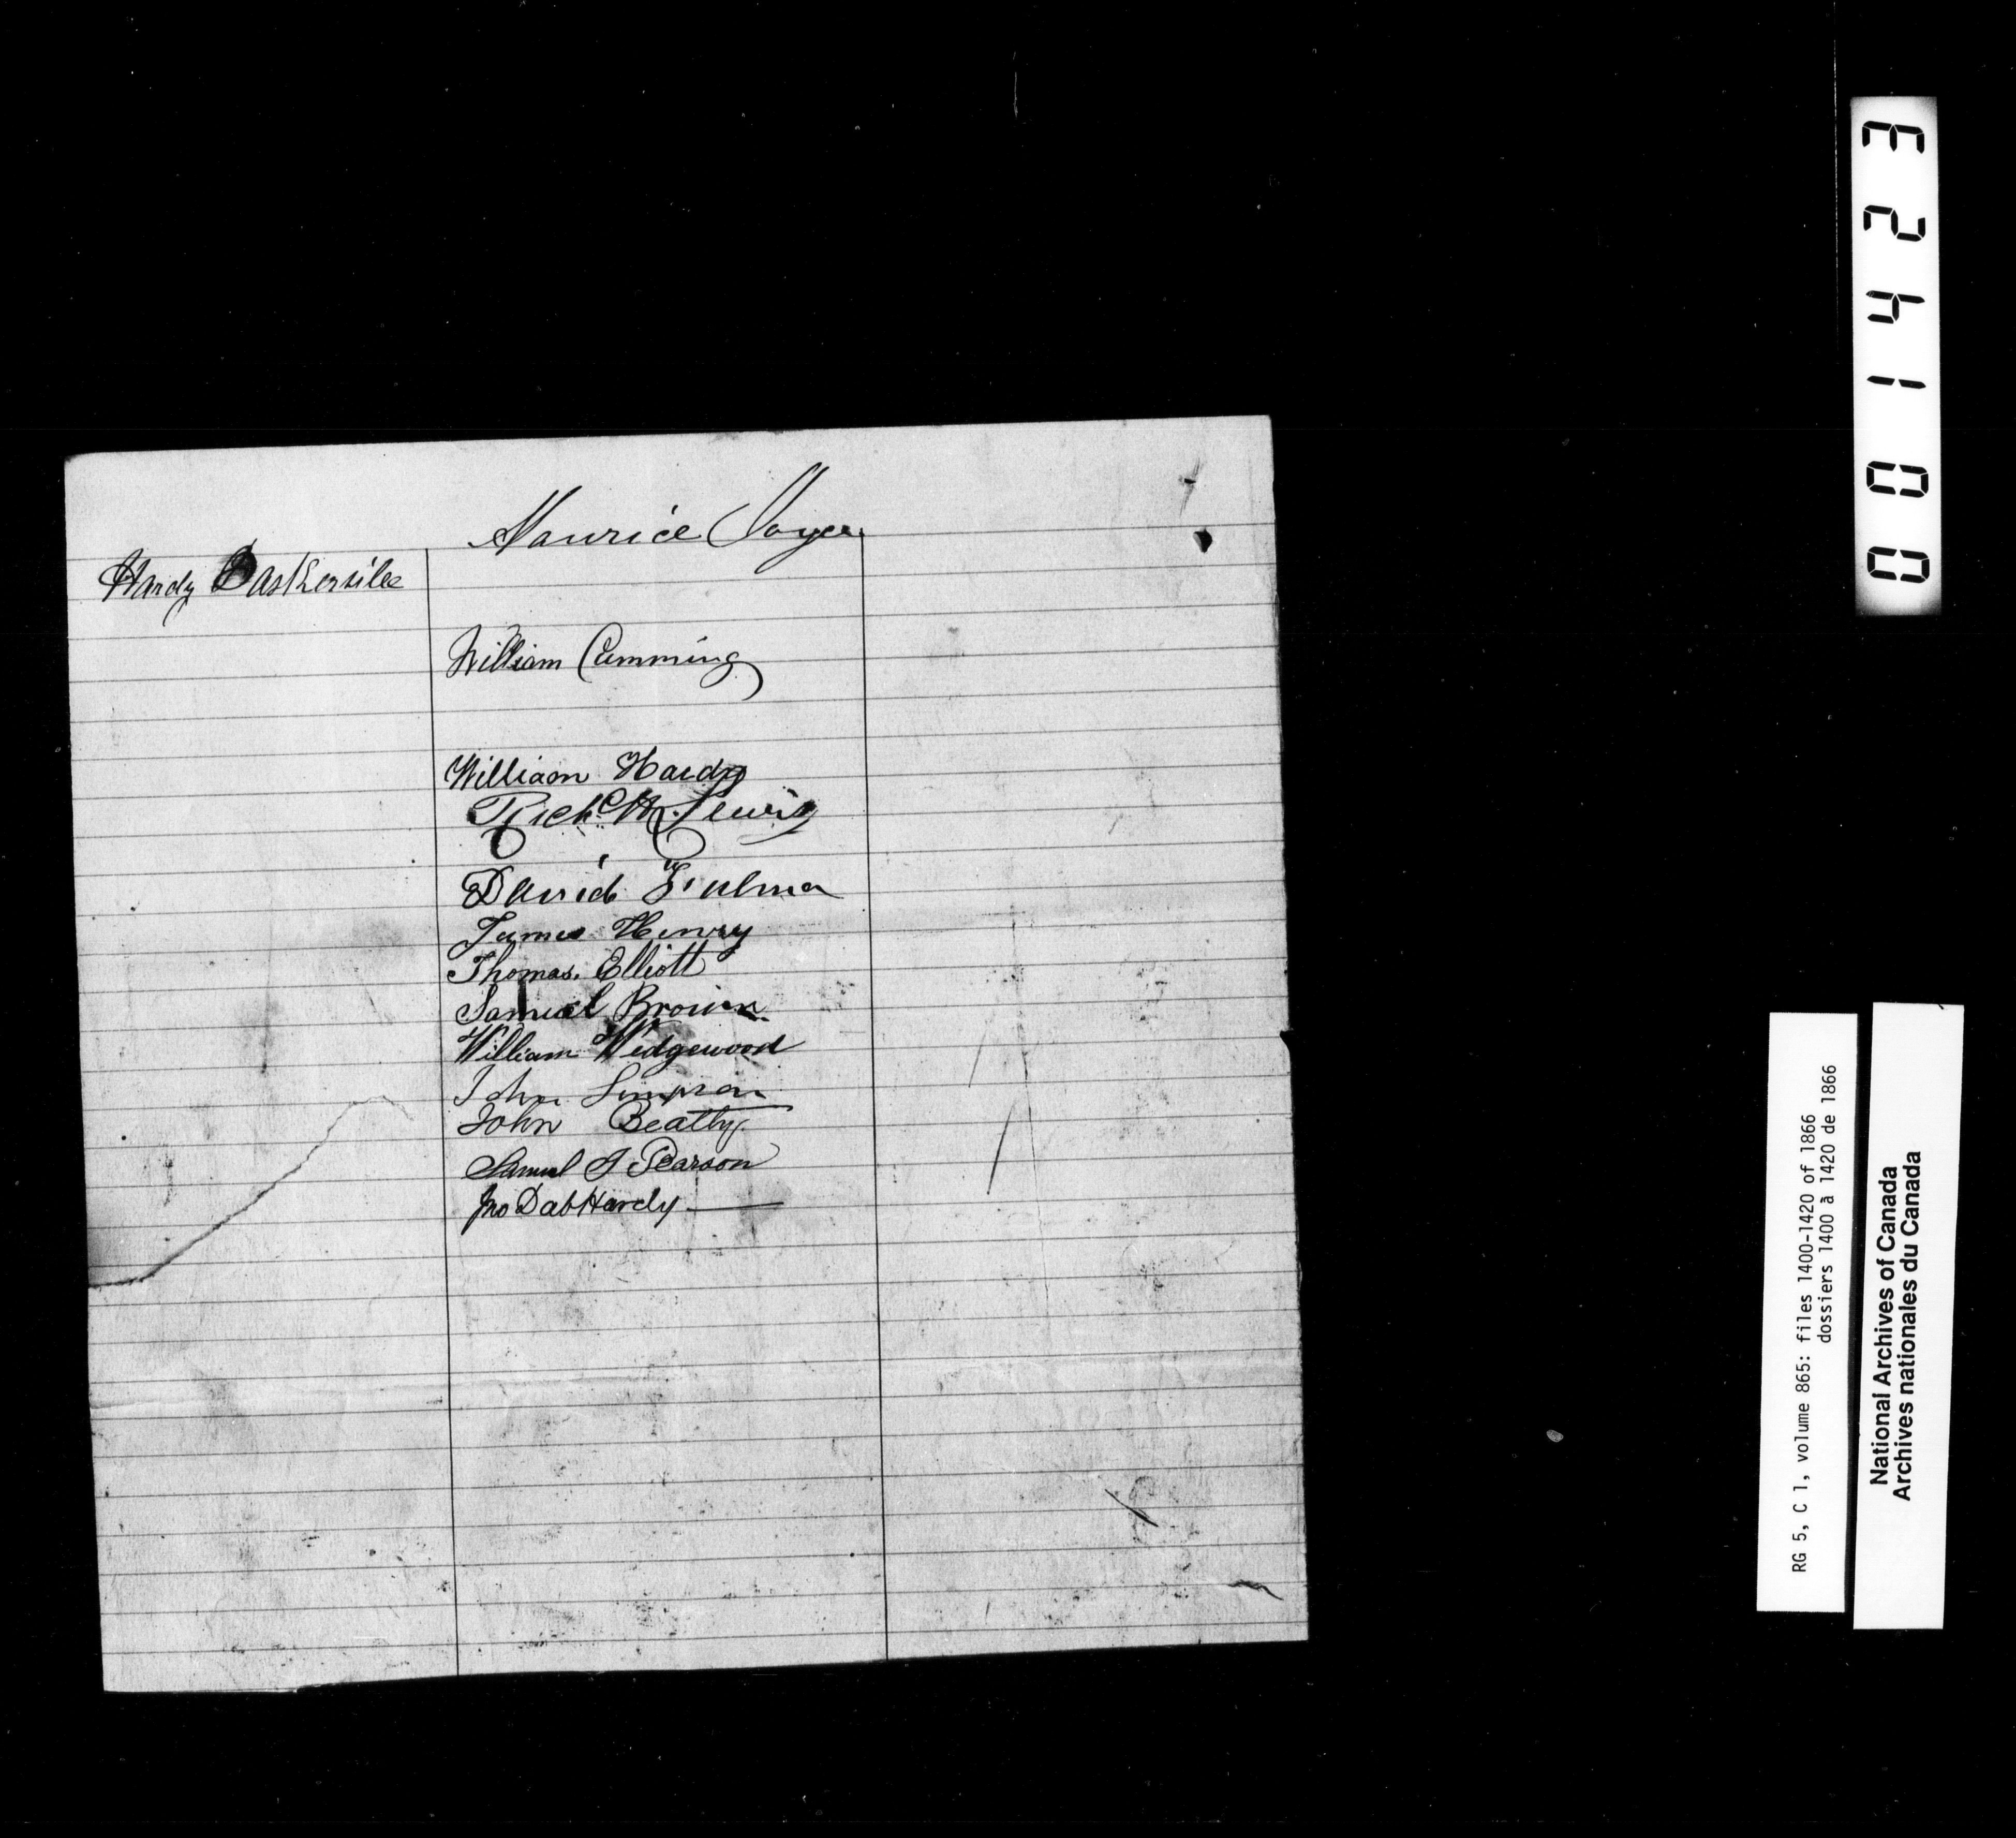 Maurice Joyce
Hardy Baskervile
William Cumming
William Hardy
Richd H. Lewis
David Fulma
James Henry
Thomas. Elliott
Samuel Brown
William Wedgewood
John Simpson
John Beatty
Samuel J Pearson
Jno Hardy
001423
RG 5, C 1, volume 865: files 1400-1420 of 1866
dossiers 1400 à 1420 de 1866
National Archives of Canada
Archives nationales du Canada